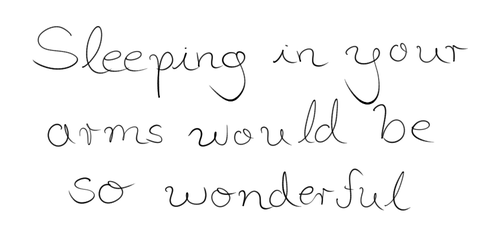 Sleeping in your
arms would be
so wonderful